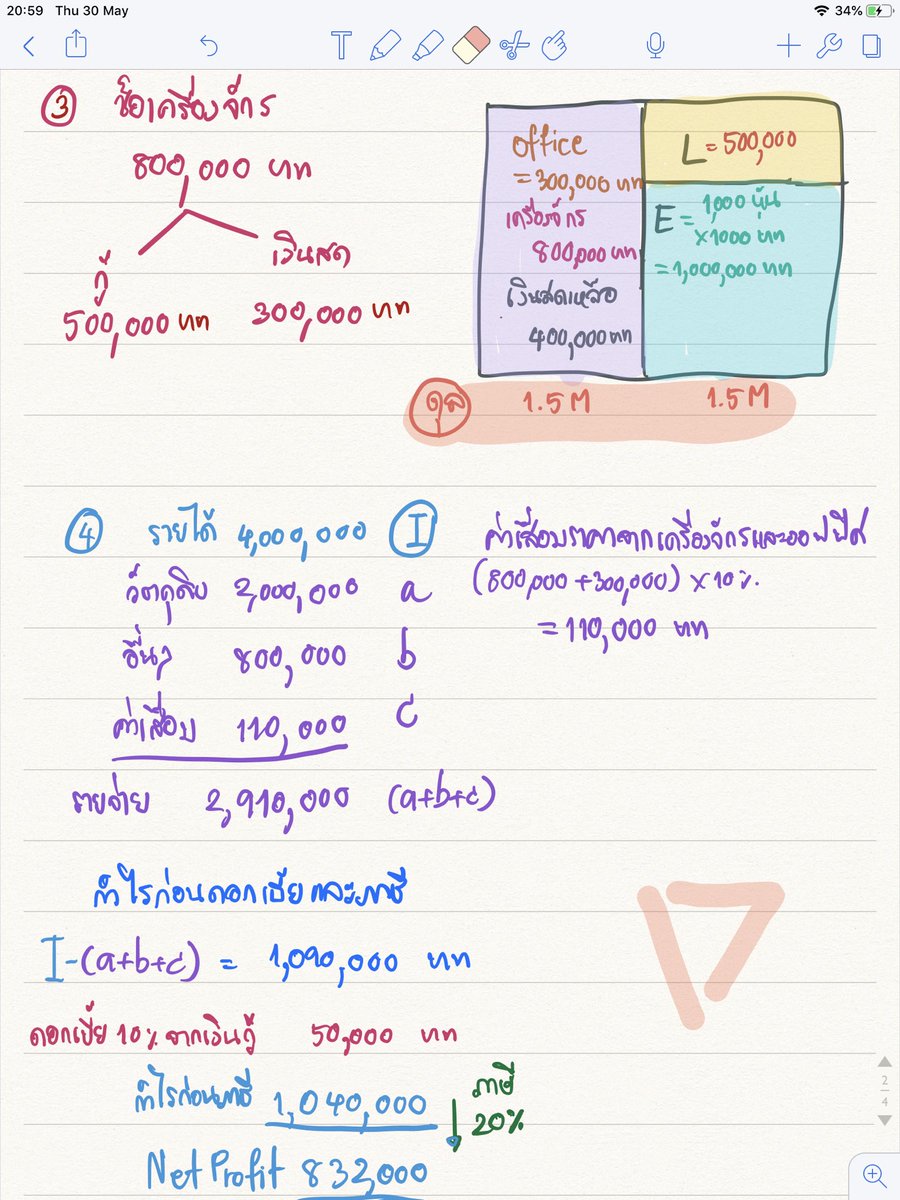 20:59 Thu 30 May
34%
T
③ ซื้อเครื่องจักร
800,000 บาท
กู้
500,000 บาท
เงินสด
300,000 บาท
office
=300,000 บาท
เครื่องจักร
800,000 บาท
เงินสดเหลือ
400,000 บาท
L = 500,000
E = 1,000 หุ้น
x1000 บาท
= 1,000,000 บาท
ดุล 1.5M 1.5M
④ รายได้ 4,000,000 I
วัตถุดิบ 2,000,000 a
อื่นๆ 800,000 b
ค่าเสื่อม 110,000 c
รายจ่าย 2,910,000 (a+b+c)
ค่าเสื่อมราคาจากเครื่องจักรและออฟฟิศ
(800,000 + 300,000) x 10%.
= 110,000 บาท
กำไรก่อนดอกเบี้ยและภาษี
I-(a+b+c) = 1,090,000 บาท
ดอกเบี้ย 10% จากเงินกู้ 50,000 บาท
กำไรก่อนภาษี 1,040,000
ภาษี
20%
Net Profit 832,000
2
4